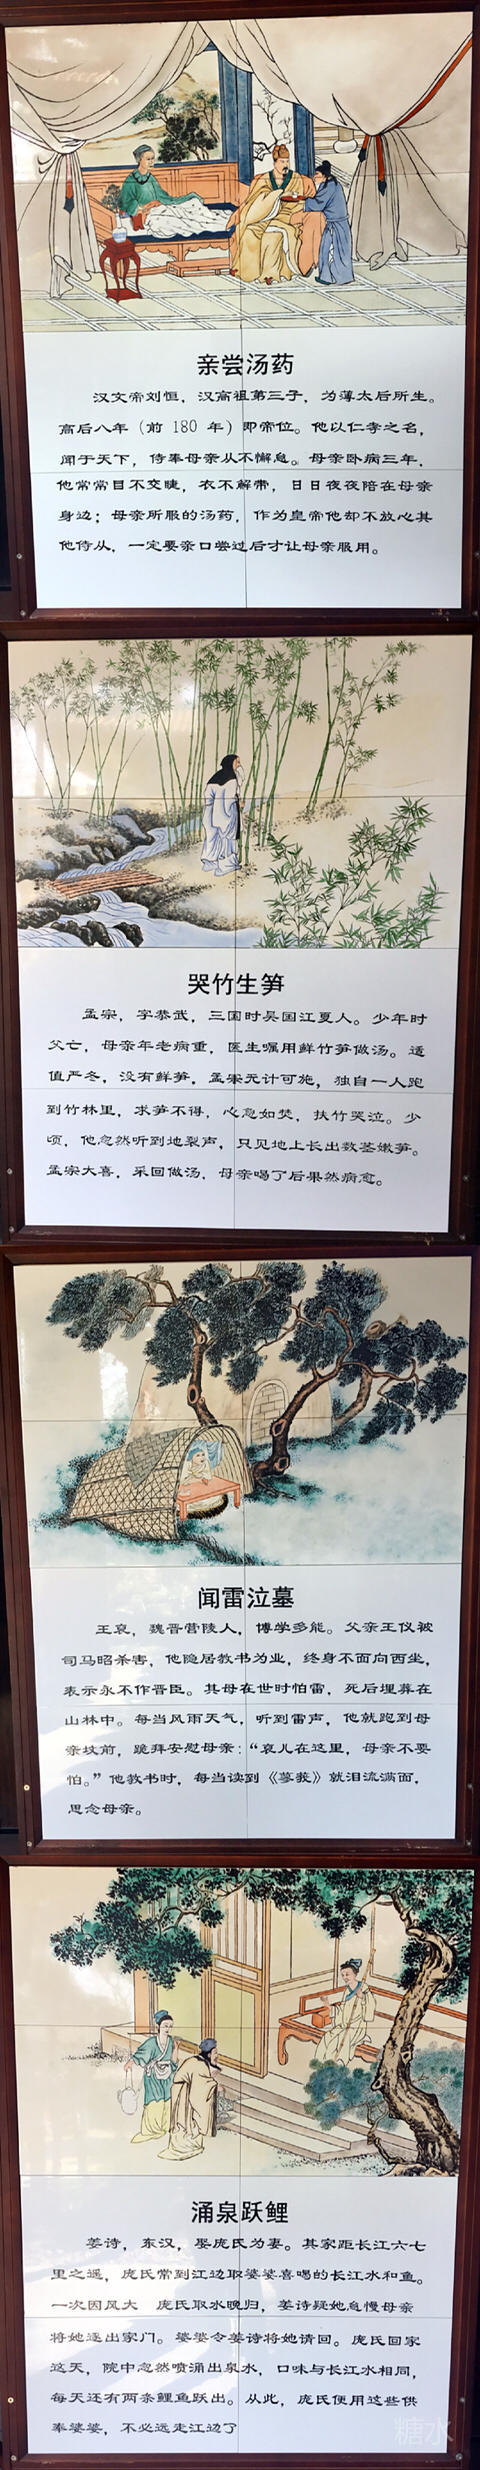 亲尝汤药
汉文帝刘恒，汉高祖第三子，为薄太后所生。
高后八年（前 180 年）即帝位。他以仁孝之名，
闻于天下，侍奉母亲从不懈怠。母亲卧病三年，
他常常目不交睫，衣不解带，日日夜夜陪在母亲
身边；母亲所服的汤药，作为皇帝他却不放心其
他侍从，一定要亲口尝过后才让母亲服用。
哭竹生笋
孟宗，字恭武，三国时吴国江夏人。少年时
父亡，母亲年老病重，医生嘱用鲜竹笋做汤。适
值严冬，没有鲜笋，孟宗无计可施，独自一人跑
到竹林里，求笋不得，心急如焚，扶竹哭泣。少
顷，他忽然听到地裂声，只见地上长出数茎嫩笋。
孟宗大喜，采回做汤，母亲喝了后果然病愈。
闻雷泣墓
王裒，魏晋营陵人，博学多能。父亲王仪被
司马昭杀害，他隐居教书为业，终身不面向西坐，
表示永不作晋臣。其母在世时怕雷，死后埋葬在
山林中。每当风雨天气，听到雷声，他就跑到母
亲坟前，跪拜安慰母亲：“裒儿在这里，母亲不要
怕。”他教书时，每当读到《蓼莪》就泪流满面，
思念母亲。
涌泉跃鲤
姜诗，东汉，娶庞氏为妻。其家距长江六七
里之遥，庞氏常到江边取婆婆喜喝的长江水和鱼。
一次因风大 庞氏取水晚归，姜诗疑她怠慢母亲
将她逐出家门。婆婆令姜诗将她请回。庞氏回家
这天，院中忽然喷涌出泉水，口味与长江水相同，
每天还有两条鲤鱼跃出。从此，庞氏便用这些供
奉婆婆，不必远走江边了
糖水